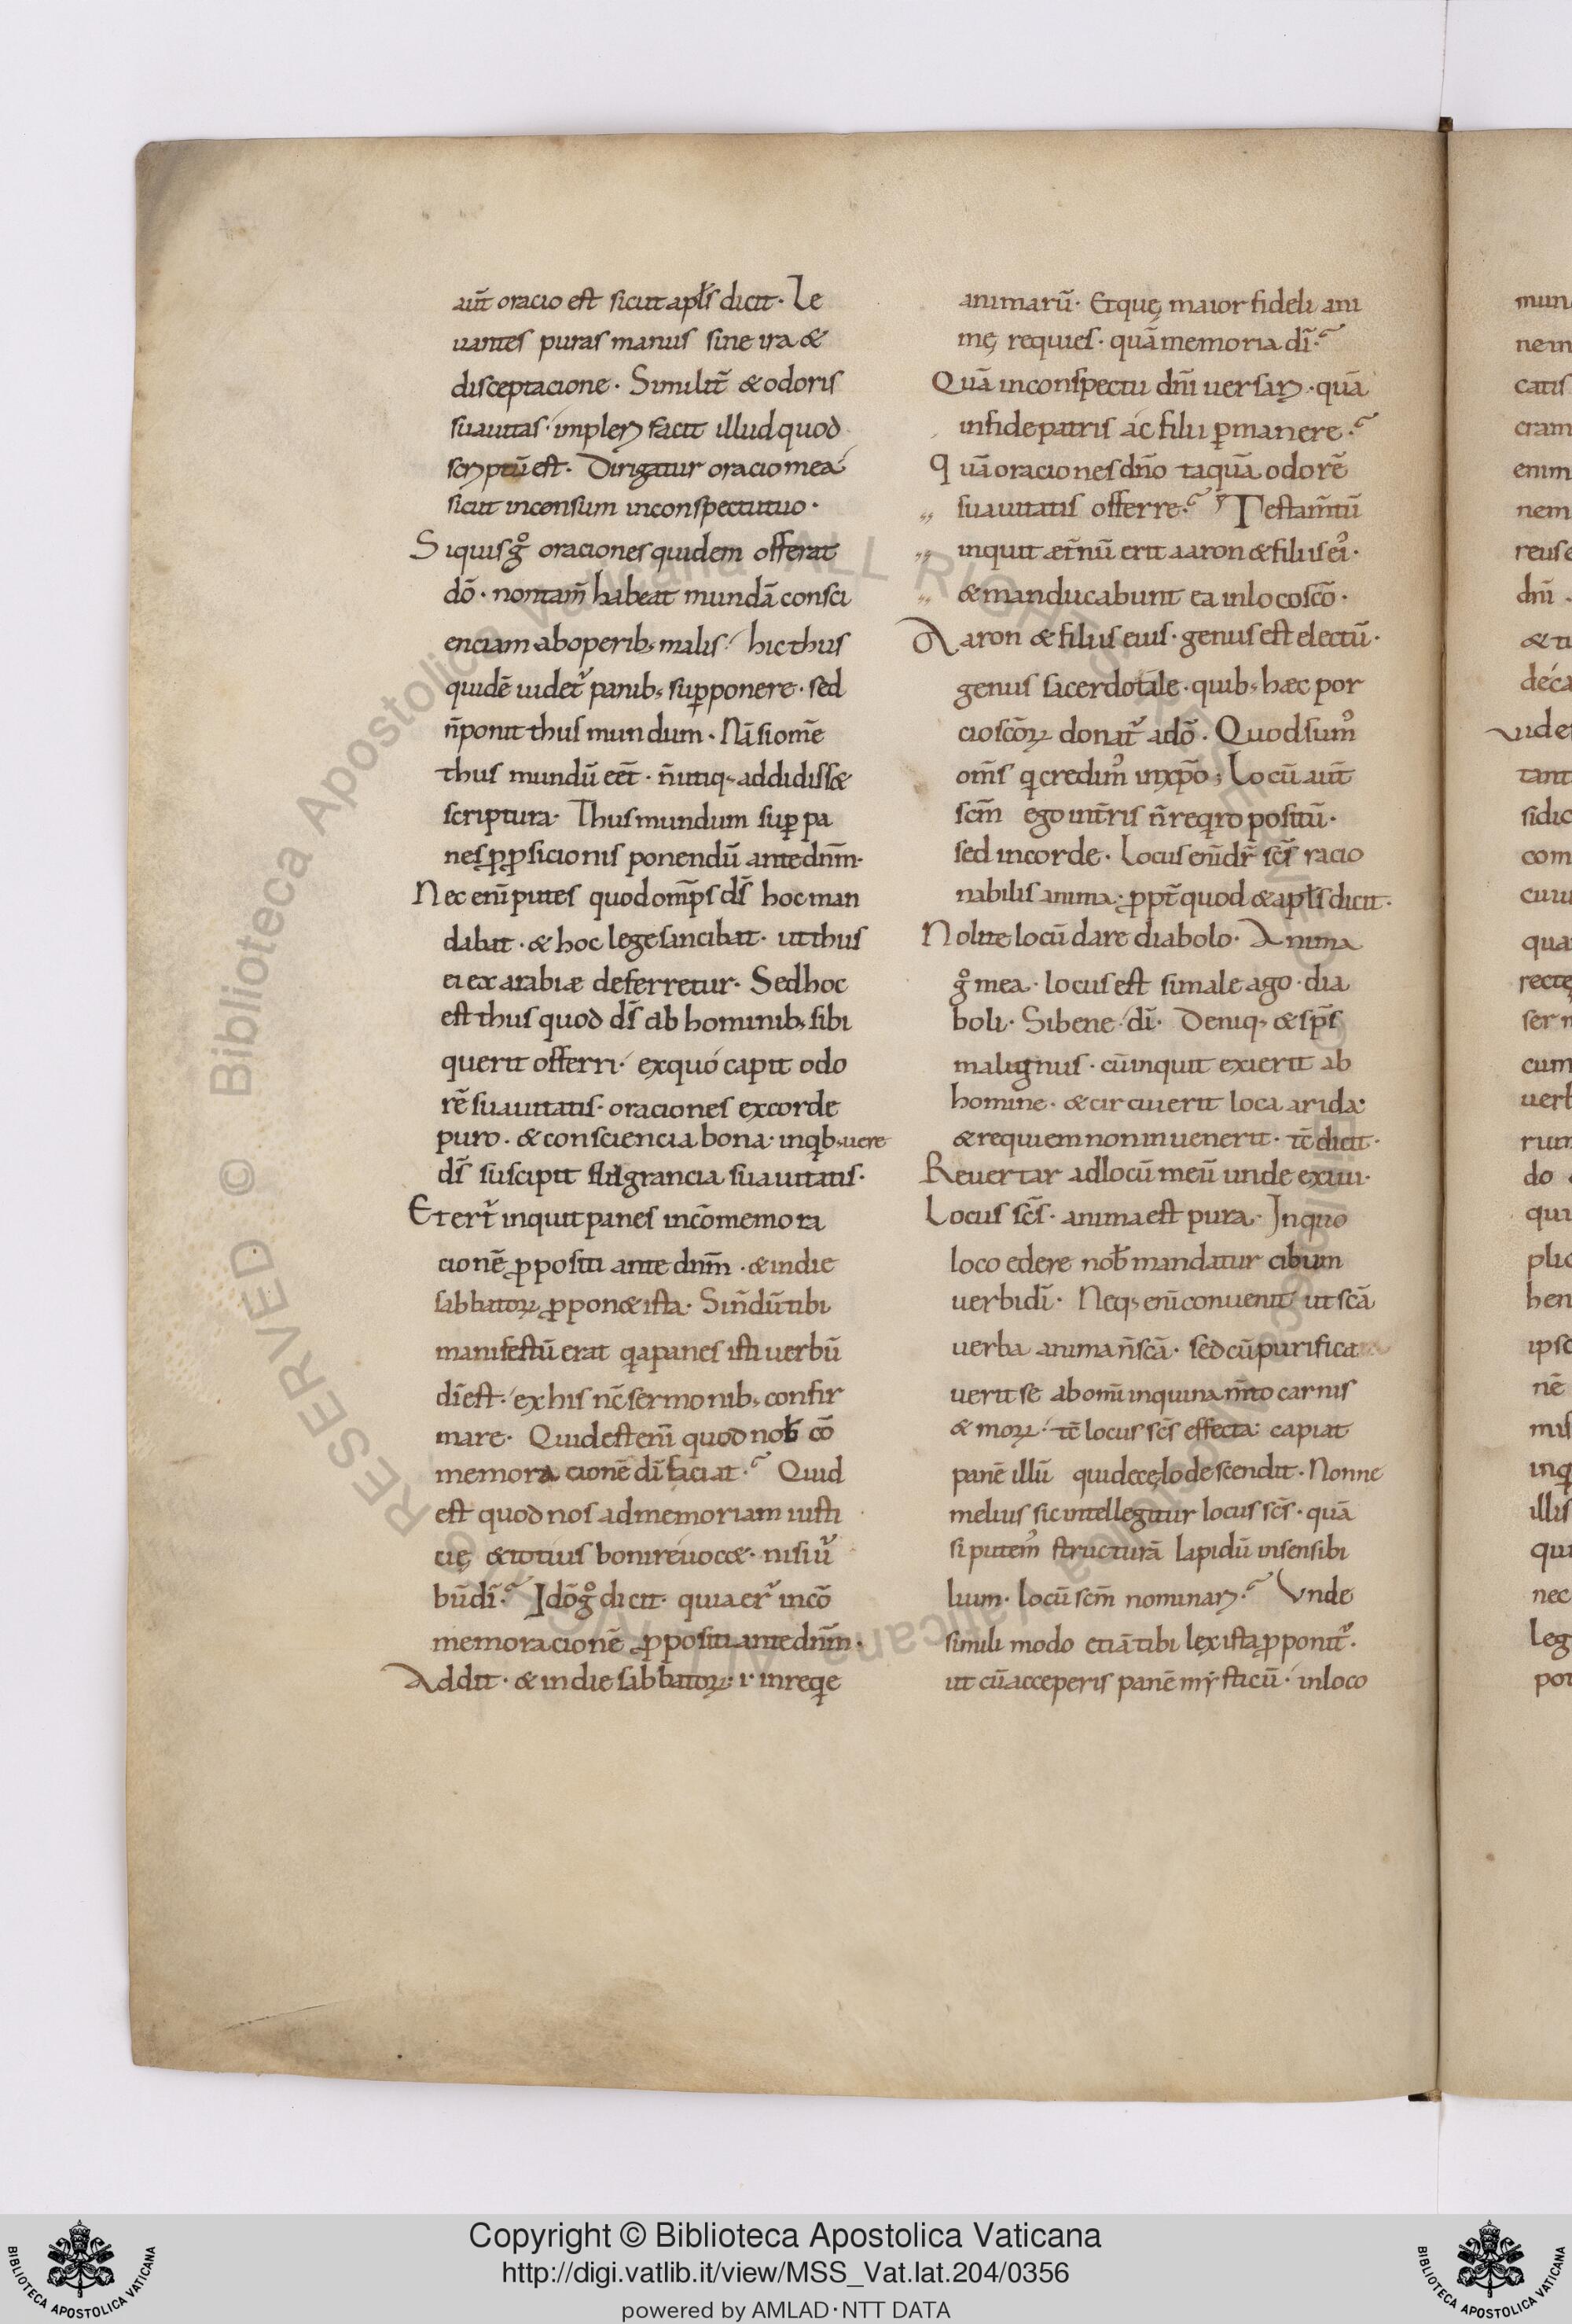 aut̄ oracio est sicut apl̄s dicit· Le
uantes puras manus sine ira &
disceptacione· Similit̄ & odoris
suauitas· impleri facit illud quod
scriptū est· Dirigatur oracio mea
sicut incensum in conspectu tuo·
Si quis gͦ oraciones quidem offerat
dō· non tam̄ habeat mundā consci
enciam ab operib; malis· hic thus
quidē uidet̄ panib; sup̱ponere· sed
n̄ ponit thus mundum· Nā si om̄e
thus mundū eēt· n̄ utiq; addidiss&
scriptura· Thus mundum sup̱ pa
nes p̱p̱sicionis ponendū ante dn̄m·
Nec eni̅ putes quod om̄ps ds̄ hoc man
dabat· & hoc lege sancibat· ut thus
ei ex arabiæ deferretur· Sed hoc
est thus quod ds̄ ab hominib; sibi
querit offerri· ex quo capit odo
rē suauitatis· oraciones ex corde
puro· & consciencia bona· in qib; uere
ds̄ suscipit flagrancia suauitatis·
Et ert̄ inquit panes in cōmemora
cionē p̱positi ante dn̄m· & in die
sabbatoꝝ p̱pon& ista· Si n̄dū tibi
manifestū erat qa panes isti uerbū
dī est· ex his nc̄ sermonib; confir
mare· Quid est eni̅ quod nob̄ cō
memoracionē dī faciat· Quid
est quod nos ad memoriam iusti
cię & totius boni reuoc&· nisi ū
bū dī· Idō gͦ dicit· quia er̄ in cō
memoracionē p̱positi ante dn̄m·
Addit· & in die sabbatoꝝ· i· in reqe
animarū· Et quę maior fideli ani
mę requies· quā memoria dī·
Quā in conspectu dn̄i uersari· quā
in fide patris ac filii p̱manere·
Quā oraciones dn̄o taquā odorē
suauitatis offerre· Testam̄tū
inquit æt̄nū erit aaron & filiis ei᾽·
& manducabunt ea in loco scō·
Aaron & filius eius· genus est electū·
genus sacerdotale· quib; hæc por
cio scōꝝ donat̄ a dō· Quod sum᾽
om̄s q credim᾽ in xp̄o; Locū aut̄
scm̄ ego in t̄ris n̄ reqro positū·
sed in corde· Locus eni̅ dr̄ scs̄ racio
nabilis anima· p̱pt̄ quod & apl̄s dicit·
Nolite locū dare diabolo· Anima
gͦ mea· locus est si male ago· dia
boli· Si bene· dī· Deniq; & sps̄
malignus· cū inquit exierit ab
homine· & circuierit loca arida·
& requiem non inuenerit· tc̄ dicit·
Reuertar ad locū meū unde exiui·
Locus scs̄· anima est pura· In quo
loco edere nob̄ mandatur cibum
uerbi dī· Neq; eni̅ conuenit ut scā
uerba anima n̄ scā· sed cū purifica
uerit se ab omi̅ inquinam̄to carnis
& moꝝ· tc̄ locus scs̄ effecta· capiat
panē illū qui de cęlo descendit· Nonne
melius sic intellegitur locus scs̄· quā
si putem᾽ structurā lapidū insensibi
lium· locū scm̄ nominari· Unde
simili modo etiā tibi lex ista p̱ponit̄·
ut cū acceperis panē mysticū· in loco
mun
nem
catis
cram
enim
nem
reuse
dn̄i
& tu
deca
uide
tant
sidic
com
cuiu
qua
recte
serm
cum
uerb
rum
do
qui
plic
hen
ipso
nē
mis
inq
illis
qui
nec
leg
por
Copyright © Biblioteca Apostolica Vaticana
http://digi.vatlib.it/view/MSS_Vat.lat.204/0356
powered by AMLAD·NTT DATA
BIBLIOTECA APOSTOLICA VATICANA
BIBLIOTECA APOSTOLICA VATICANA